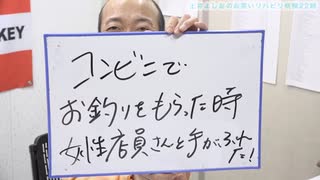 土谷よしおのお笑いリハビリ根極22時
KEY
コンビニで
お釣りをもらった時
女性店員さんと手がふれた！